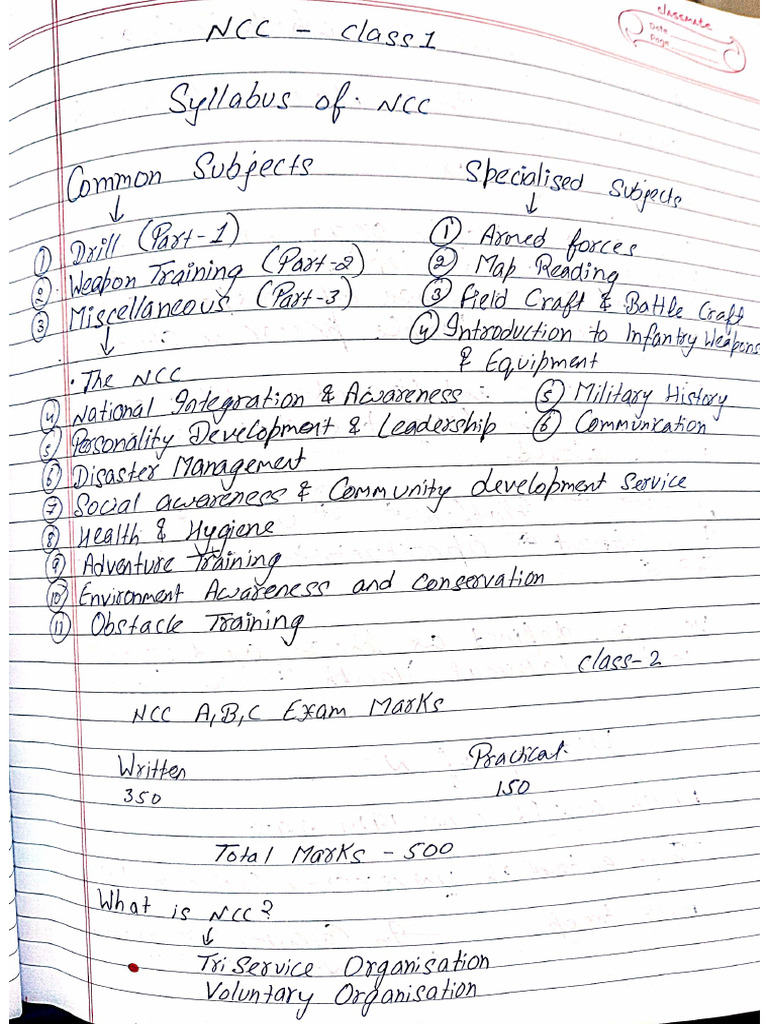 classmate
Date
Page
NCC - Class 1
Syllabus of NCC
Common Subjects
Specialised Subjects
① Drill (Part-1)
② Weapon Training (Part-2)
③ Miscellaneous (Part-3)
① Armed forces
② Map Reading
③ Field Craft & Battle Craft
④ Introduction to Infantry Weapons
& Equipment
⑤ Military History
⑥ Communication
• The NCC
④ National Integration & Awareness
⑤ Personality Development & Leadership
⑥ Disaster Management
⑦ Social awareness & Community development Service
⑧ Health & Hygiene
⑨ Adventure Training
⑩ Environment Awareness and conservation
⑪ Obstacle Training
Class-2
NCC A,B,C Exam Marks
Written
350
Practical
150
Total Marks - 500
What is NCC?
Tri Service Organisation
Voluntary Organisation